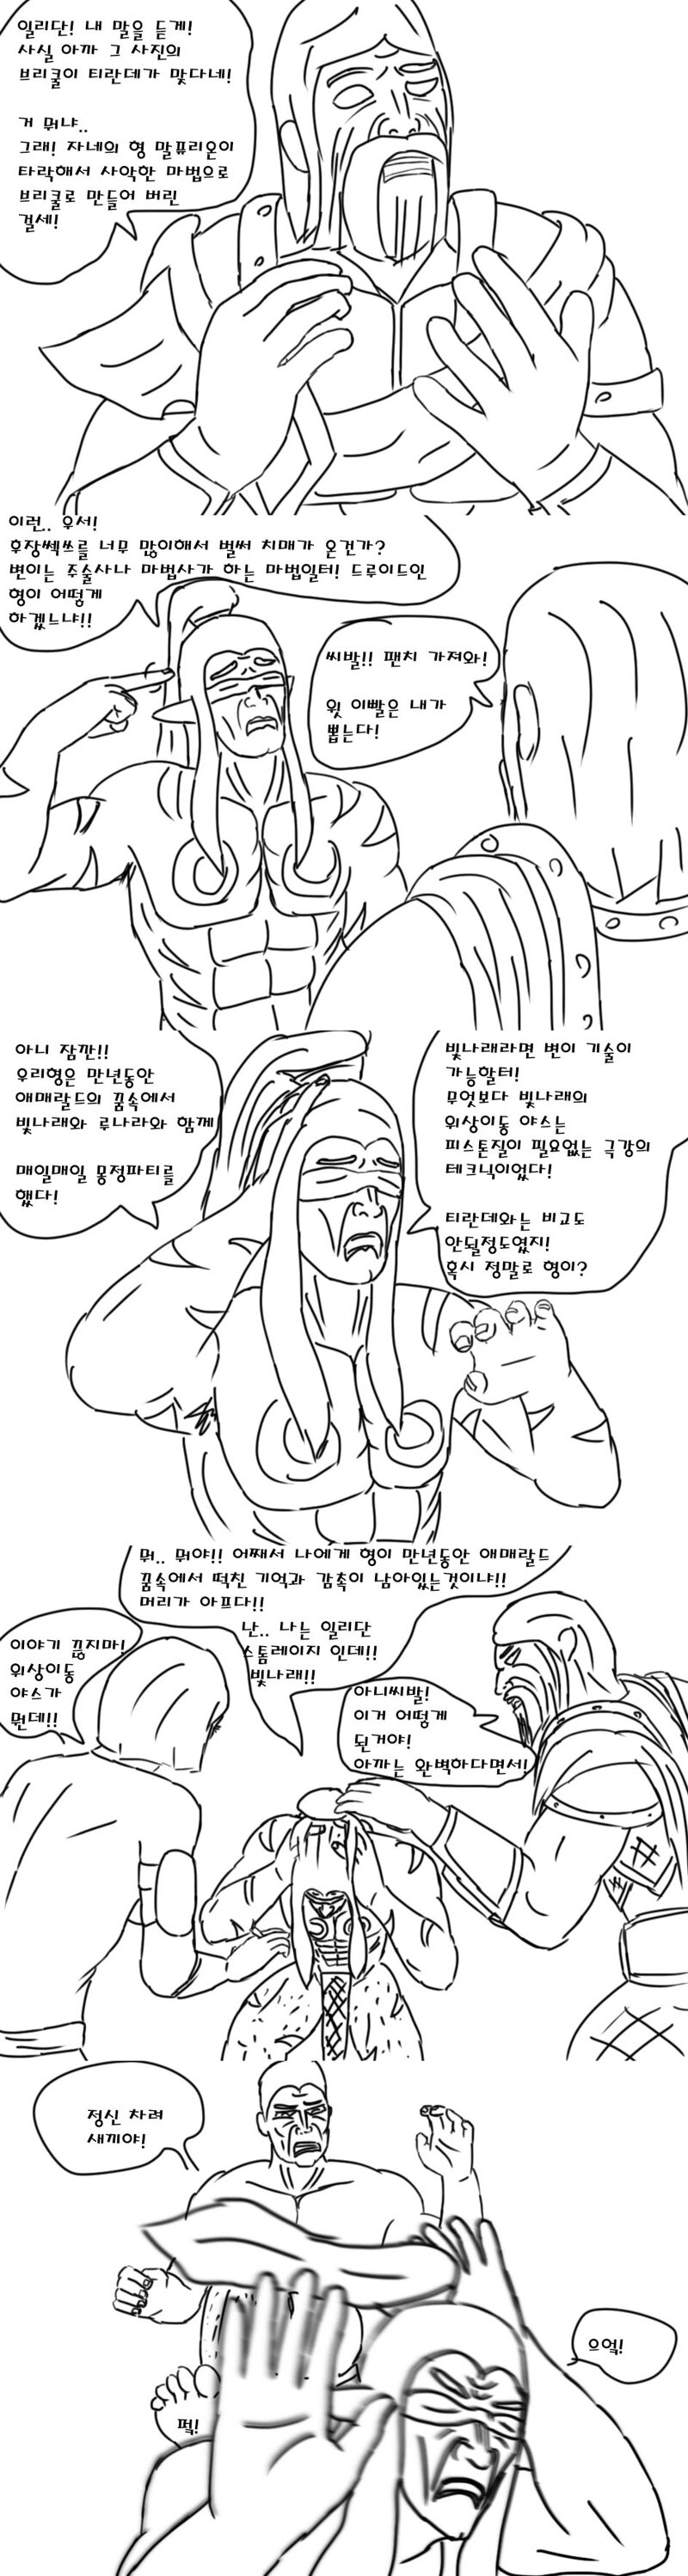 일리단! 내 말을 듣게!
사실 아까 그 사진의
브리쿨이 티란데가 맞다네!
거 뭐냐..
그래! 자네의 형 말퓨리온이
타락해서 사악한 마법으로
브리쿨로 만들어 버린
걸세!
이런.. 우서!
후장쎅쓰를 너무 많이해서 벌써 치매가 온건가?
변이는 주술사나 마법사가 하는 마법일터! 드루이드인
형이 어떻게
하겠느냐!!
씨발!! 팬치 가져와!
윗 이빨은 내가
뽑는다!
아니 잠깐!!
우리형은 만년동안
애매랄드의 꿈속에서
빛나래와 루나라와 함께
매일매일 몽정파티를
했다!
빛나래라면 변이 기술이
가능할터!
무엇보다 빛나래의
위상이동 야스는
피스톤질이 필요없는 극강의
테크닉이었다!
티란데와는 비교도
안될정도였지!
혹시 정말로 형이?
뭐.. 뭐야!! 어째서 나에게 형이 만년동안 애매랄드
꿈속에서 떡친 기억과 감촉이 남아있는것이냐!!
머리가 아프다!!
난.. 나는 일리단
스톰레이지 인데!!
빛나래!!
이야기 끊지마!
위상이동
야스가
뭔데!!
아니씨발!
이거 어떻게
된거야!
아까는 완벽하다면서!
정신 차려
새끼야!
으엌!
퍽!